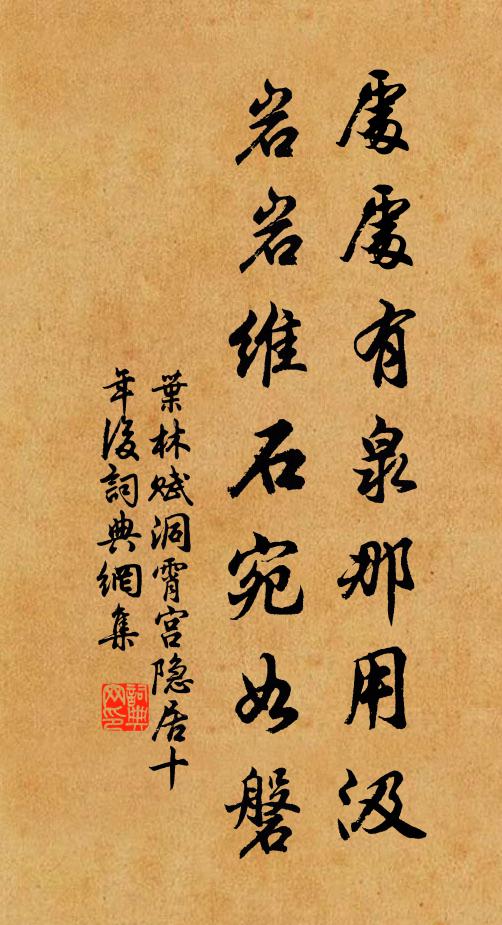 處處有泉那用汲
岩岩維石宛如磐
葉林賦洞霄宮隐居十
年後詞典網集
詞典網印